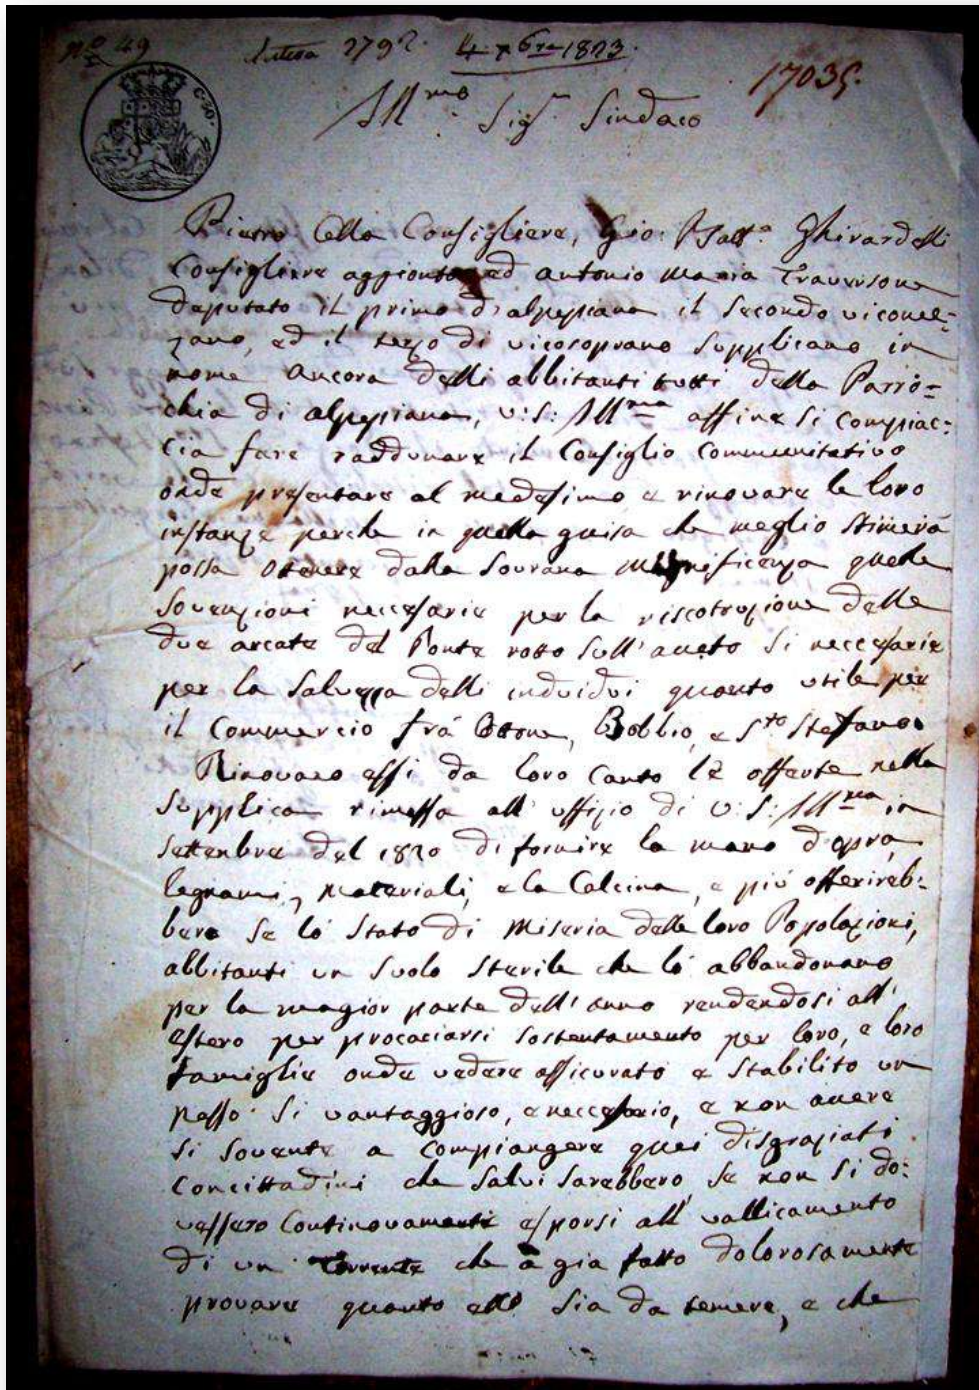 N.o 49 Lettera 2792. 4 Xbre 1823. 17035.
Ill.mo Sig.r Sindaco
Pietro Cella Consigliere, Gio: Batt.a Ghirardelli
Consigliere aggionto ed Antonio Maria Traversone
deputato il primo d'alpepiana il secondo vicomez=
zano, ed il terzo di vicosoprano supplicano in
nome ancora delli abbitanti tutti della Parro=
chia di alpepiana, V: S: Ill.ma affine si compiac=
cia fare raddunare il Consiglio Communitativo
onde presentare al medesimo e rinovare le loro
instanze perche in quella guisa che meglio stimerà
possa ottenere dalla Sovrana Magnificenza quelle
sovenzioni neccesarie per la riscotruzione delle
due arcate del Ponte rotto sull'aveto si neccesarie
per la salvezza delli individui quanto utile per
il Commercio frà Ottone, Bobbio, e S.to Stefano.
Rinovano essi da loro canto le offerte nella
supplica rimessa all'uffizio di V: S: Ill.ma in
settembre del 1820 di fornire la mano d'opra,
legnami, materiali, e la Calcina, e più offrireb=
bero se lo stato di Miseria delle loro Popolazioni,
abbitanti un suolo sterile che lo abbandonano
per la magior parte dell'anno rendendosi all'
estero per procaciarsi sostentamento per loro, e loro
famiglie onde vedere assicurato e stabilito un
passo si vantaggioso, e neccesario, e non avere
si sovente a compiangere quei disgraziati
Concittadini che salvi sarebbero se non si do=
vessero Continovamente esporsi all'vallicamento
di un torrente che à gia fatto dolorosamente
provare quanto esso sia da temere, e che